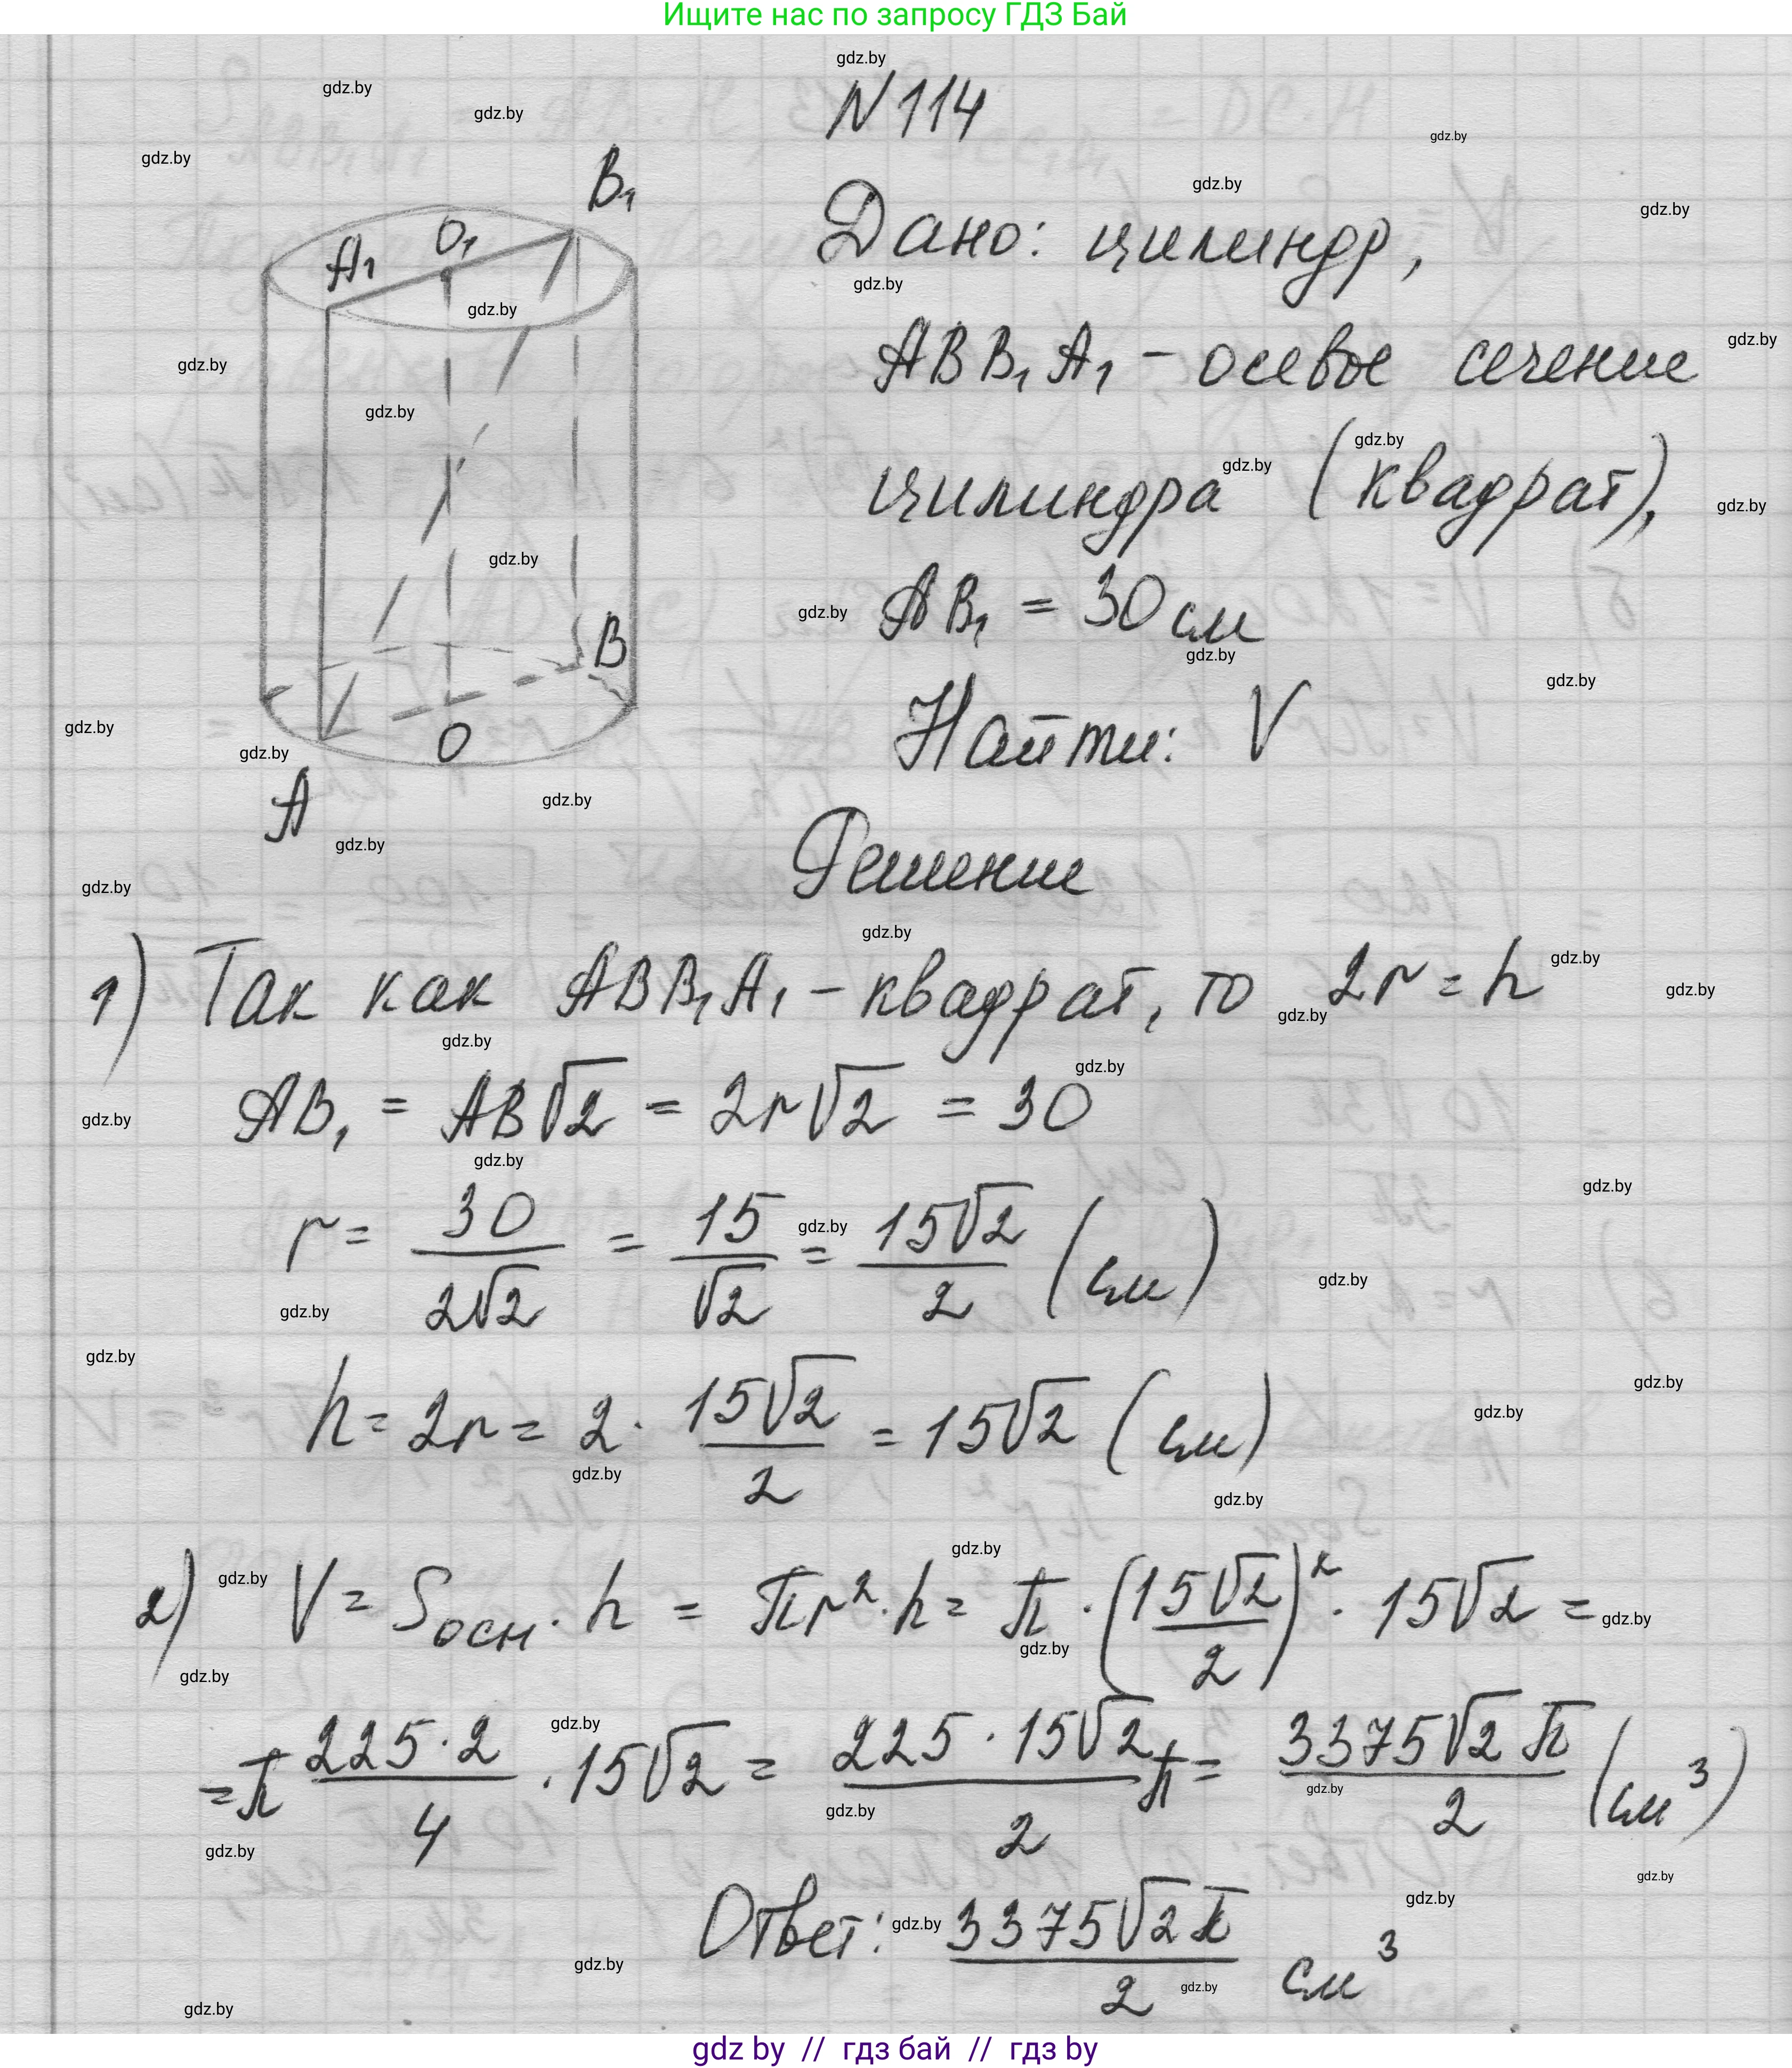 Ищите нас по запросу ГДЗ Бай
N 114
Дано: цилиндр,
ABB₁A₁ - осевое сечение
цилиндра (квадрат),
AB₁ = 30 см
Найти: V
B₁
O₁
A₁
B
O
A
Решение
1) Так как ABB₁A₁ - квадрат, то 2r = h
AB₁ = AB√2 = 2r√2 = 30
r = 30/(2√2) = 15/√2 = 15√2/2 (см)
h = 2r = 2 · 15√2/2 = 15√2 (см)
2) V = Sосн · h = πr² · h = π · (15√2/2)² · 15√2 =
= π 225·2/4 · 15√2 = 225·15√2/2 π = 3375√2 π/2 (см³)
Ответ: 3375√2 π/2 см³
gdz by // гдз бай // гдз by